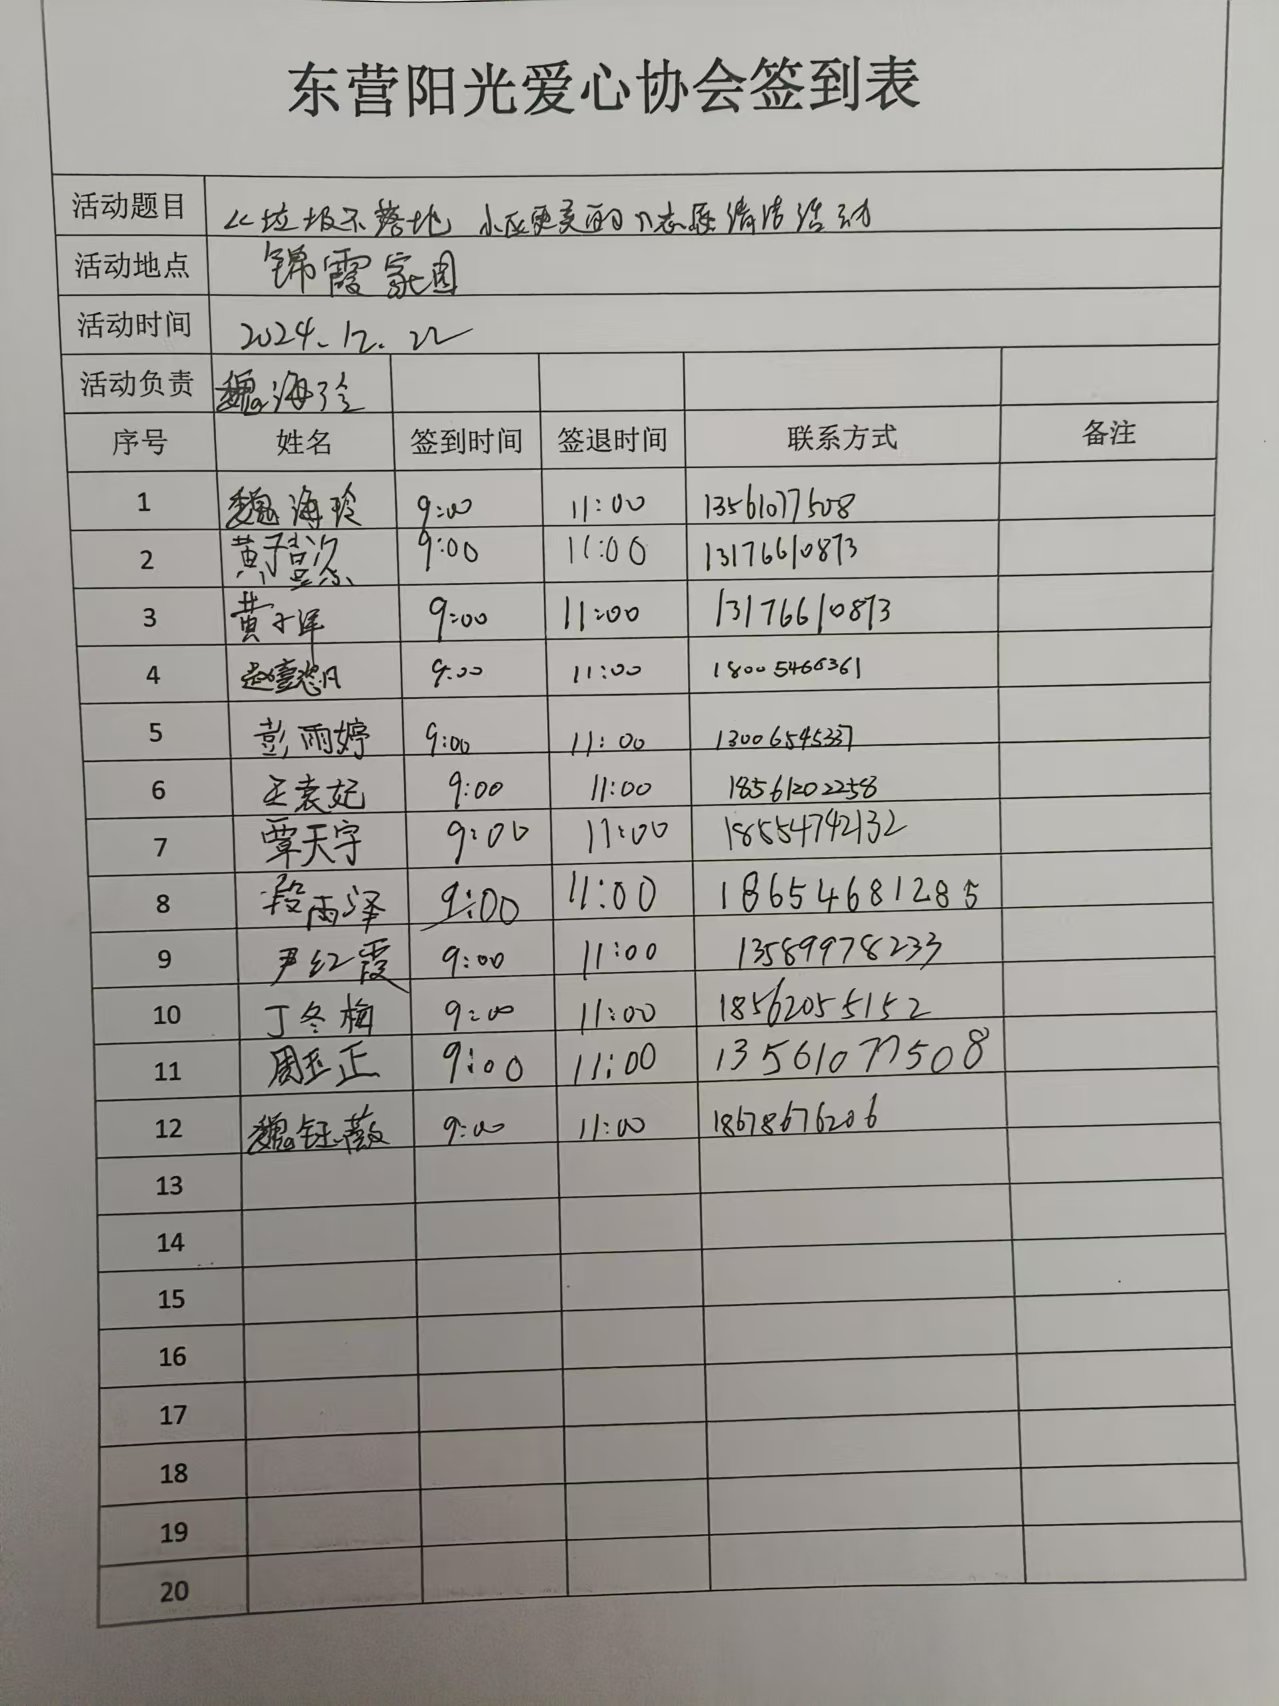 东营阳光爱心协会签到表
活动题目 《垃圾不落地 小区更美丽》志愿清洁活动
活动地点 锦霞家园
活动时间 2024.12.22
活动负责 魏海玲
序号 姓名 签到时间 签退时间 联系方式 备注
1 魏海玲 9:00 11:00 13561077508
2 9:00 11:00 13176610873
3 黄子洋 9:00 11:00 13176610873
4 9:00 11:00 18005466361
5 彭雨婷 9:00 11:00 13006545337
6 王袁妃 9:00 11:00 18561202258
7 覃天宇 9:00 11:00 18554742132
8 段雨泽 9:00 11:00 18654681285
9 尹红霞 9:00 11:00 13589978233
10 丁冬梅 9:00 11:00 18562055152
11 周玉正 9:00 11:00 13561077508
12 魏钰薇 9:00 11:00 18678676206
13
14
15
16
17
18
19
20